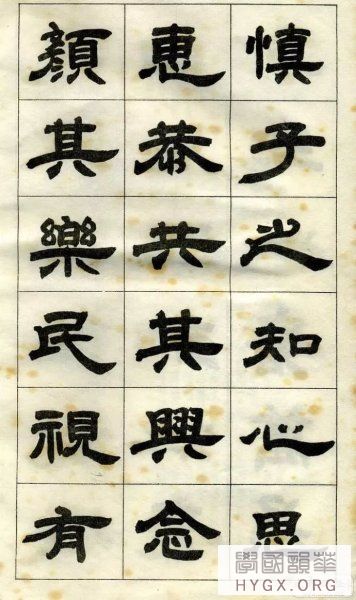 慎子之知心思
惠恭共其興念
顏其樂民視有
學國韻華
HYGX.ORG